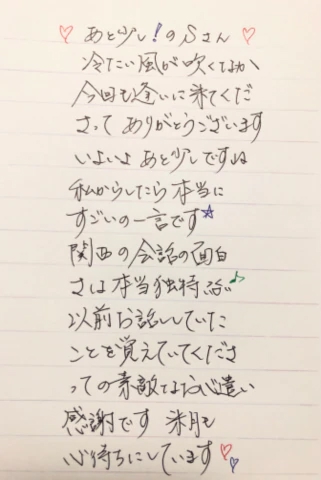 ♡ あと少し!のSさん ♡
冷たい風が吹くなか
今回も逢いに来てくだ
さって ありがとうございます
いよいよ あと少しですね
私からしたら 本当に
すごいの一言です☆
関西の会話の面白
さは本当独特
以前お話ししていた
ことを覚えていてくださ
っての素敵なお心遣い
感謝です 来月も
心待ちにしています♡♡